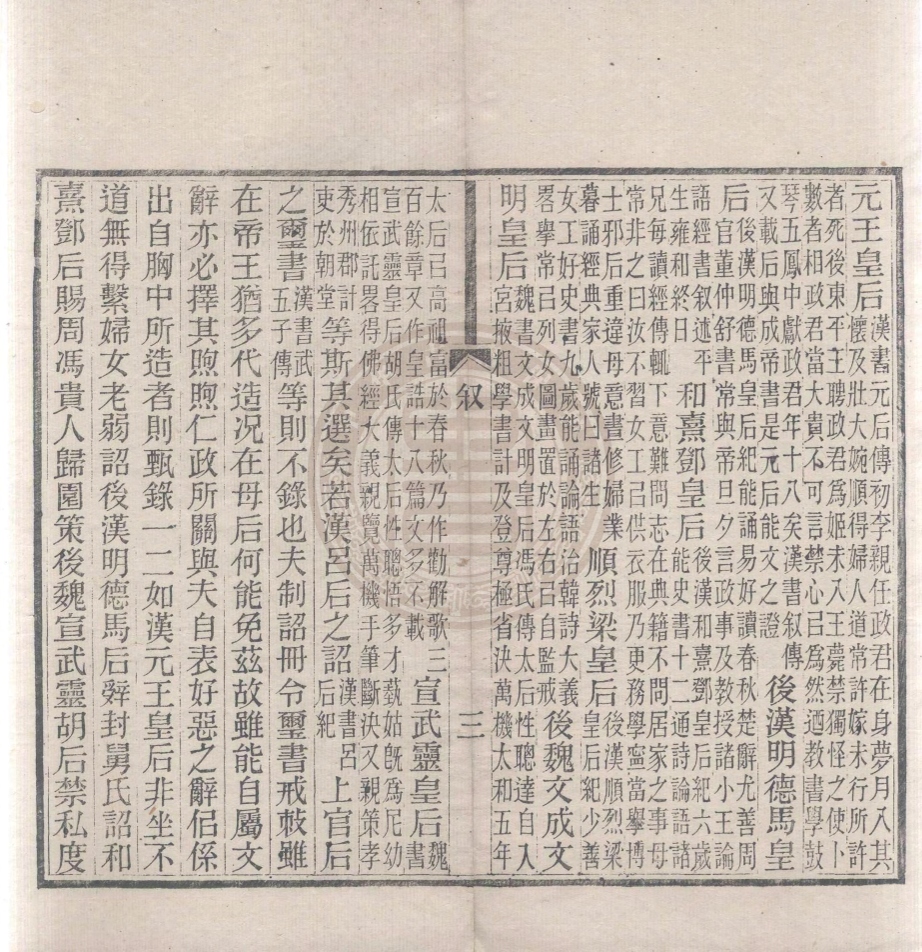 元王皇后漢書元后傳初李親任政君在身夢月入其
懷及壯大婉順得婦人道常許嫁未行所許
者死後東平王聘政君爲姬未入王薨禁獨怪之使卜
數者相政君當大貴不可言禁心已爲然迺教書學鼓
琴五鳳中獻政君年十八矣漢書叙傳
又載后與成帝書是元后能文之證後漢明德馬皇
后後漢明德馬皇后紀能誦易好讀春秋楚辭尤善周
官董仲舒書常與帝旦夕言政事及教授諸小王論
語經書叙述平
生雍和終日和熹鄧皇后後漢和熹鄧皇后紀六歲
能史書十二通詩論語諸
兄每讀經傳輒下意難問志在典籍不問居家之事母
常非之曰汝不習女工已供衣服乃更務學寧當擧博
士邪后重違母意晝修婦業
暮誦經典家人號曰諸生順烈梁皇后後漢順烈梁
皇后紀少善
女工好史書九歲能誦論語治韓詩大義
畧擧常已列女圖畫置於左右已自監戒後魏文成文
明皇后魏書文成文明皇后馮氏傳太后性聰達自入
宮掖粗學書計及登尊極省決萬機太和五年
叙 三
太后已高祖富於春秋乃作勸解歌三
百餘章又作皇誥十八篇文多不載宣武靈皇后魏
書
宣武靈皇后胡氏傳太后性聰悟多才藝姑旣爲尼幼
相依託畧得佛經大義親覽萬機手筆斷決又親策孝
秀州郡計
吏於朝堂等斯其選矣若漢呂后之詔漢書呂
后紀上官后
之璽書漢書武
五子傳等則不錄也夫制詔冊令璽書戒敕雖
在帝王猶多代造况在母后何能免茲故雖能自屬文
辭亦必擇其煦煦仁政所關與夫自表好惡之辭侣係
出自胸中所造者則甄錄一二如漢元王皇后非坐不
道無得繫婦女老弱詔後漢明德馬后辤封舅氏詔和
熹鄧后賜周馮貴人歸園策後魏宣武靈胡后禁私度